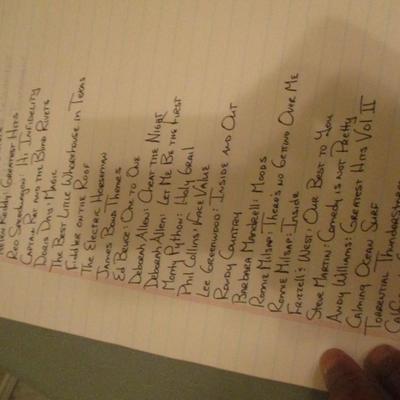 Reddy: Greatest Hits
Reo Speedwagon: Hi Infidelity
Captain Rat and the Blind Rivets
Doris Day: Magic
The Best Little Whorehouse in Texas
Fiddler on the Roof
The Electric Horseman
James Bond Themes
Ed Bruce: One to One
Deborah Allen: Cheat the Night
Deborah Allen: Let Me Be the First
Monty Python: Holy Grail
Phil Collins: Face Value
Lee Greenwood: Inside and Out
Rowdy Country
Barbara Mandrell: Moods
Ronnie Milsap: There's no Getting Over Me
Ronnie Milsap: Inside
Frizzell & West: Our Best to You
Steve Martin: Comedy is not Pretty
Andy Williams: Greatest Hits Vol II
Calming Ocean Surf
Torrential Thunderstorms